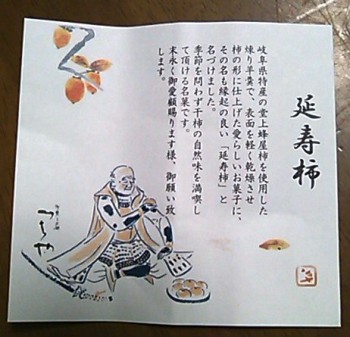 延寿柿
岐阜県特産の堂上蜂屋柿を使用した
煉り羊羹で、表面を軽く乾燥させ
柿の形に仕上げた愛らしいお菓子に、
その名も縁起の良い「延寿柿」と
名づけました。
季節を問わず干柿の自然味を満喫し
て頂ける名菓です。
末永く御愛顧賜ります様、御願い致
します。
つちや